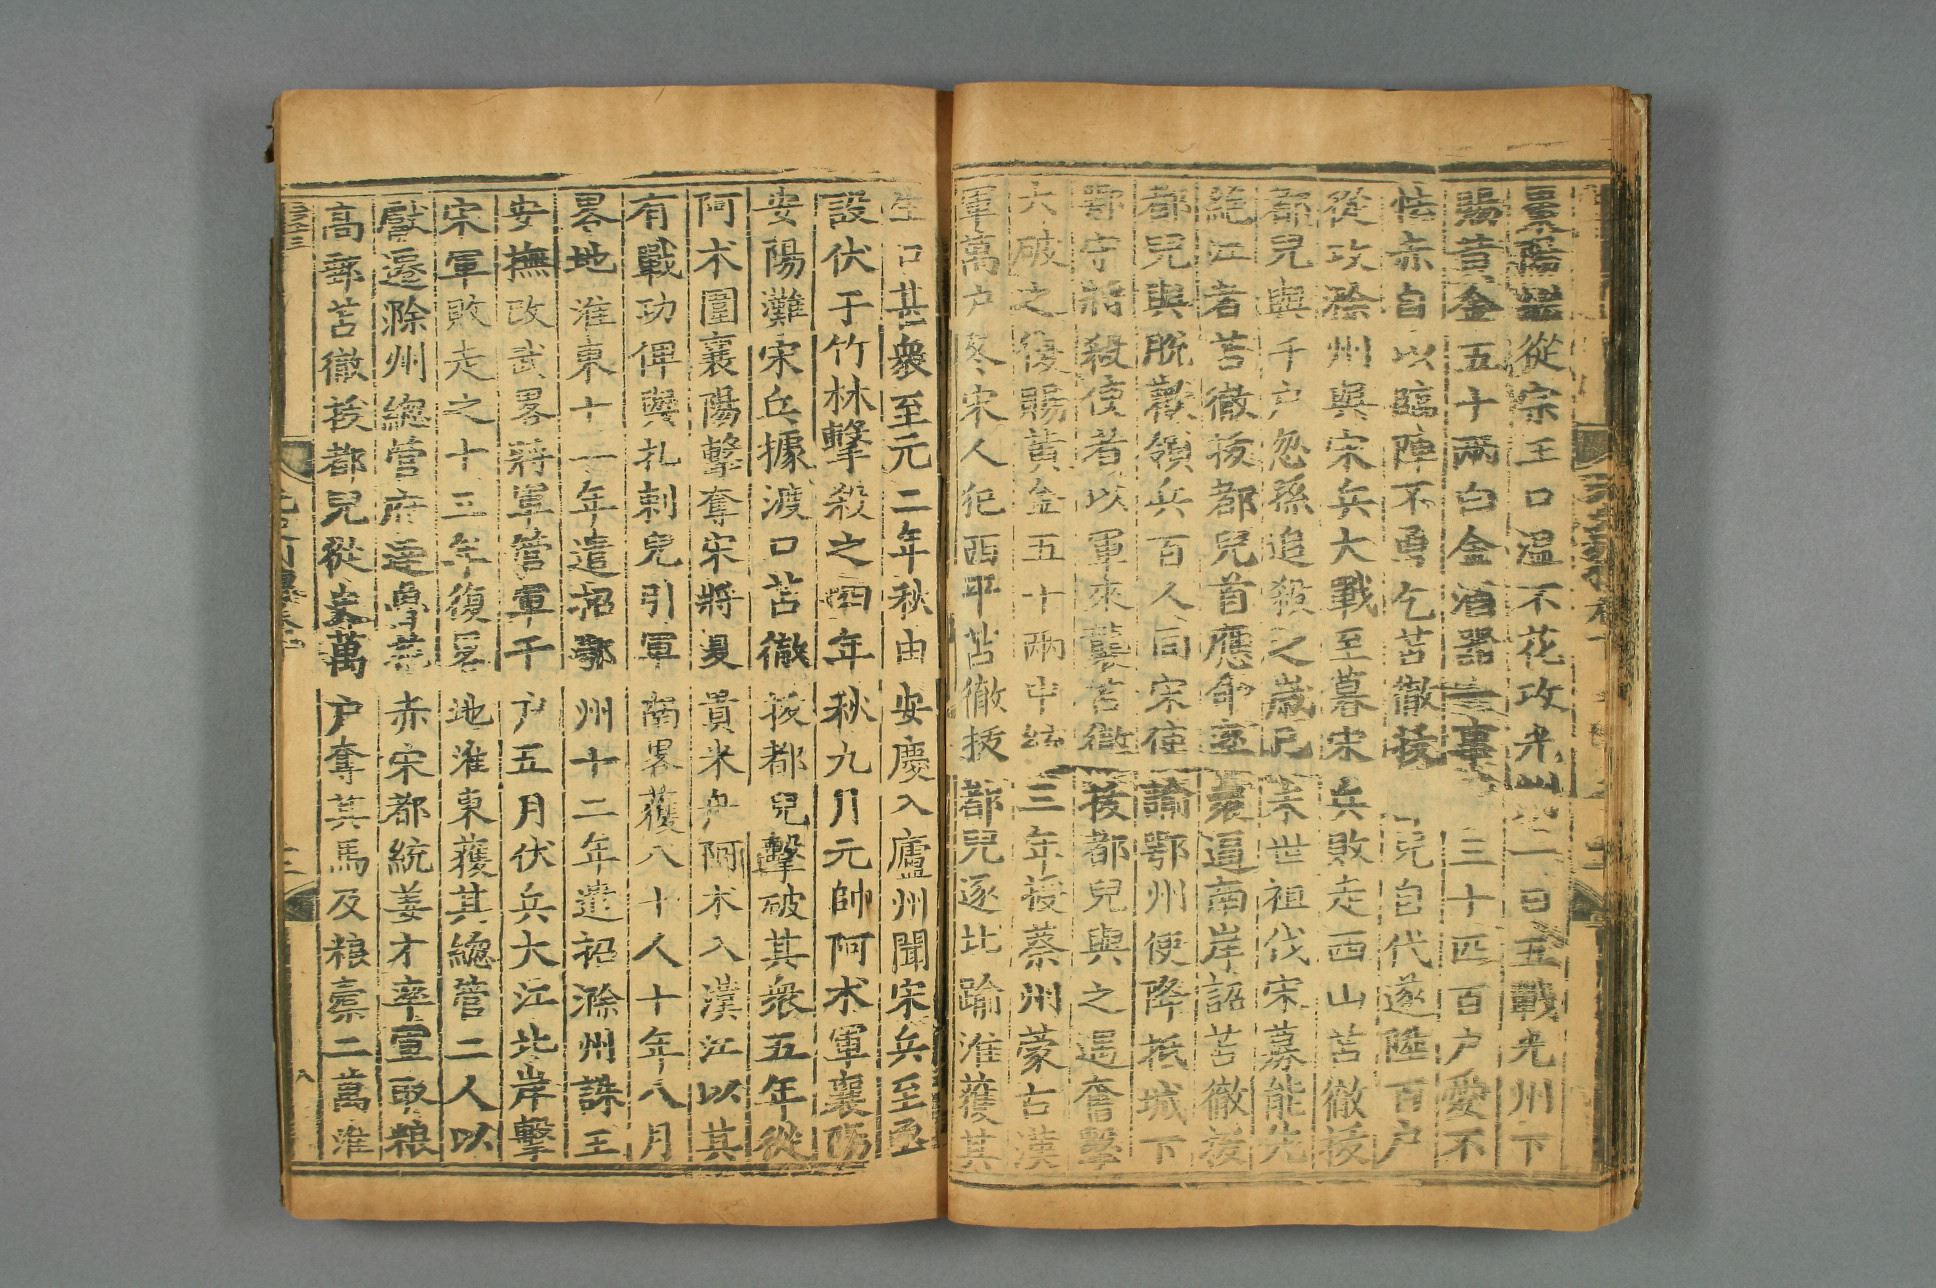 陽繼從宗王口温不花攻光 一日五戰光州下
賜黃金五十兩白金酒器一事 三十匹百户愛不
怯赤自以臨陣不勇乞苫徹拔 兒自代遂陞百户
從攻滁州與宋兵大戰至暮宋兵敗走西山苫徹拔
都兒與千户忽孫追殺之歲己未世祖伐宋募能先
絶江者苫徹拔都兒首應命率衆逼南岸詔苫徹拔
都兒與脫歡領兵百人同宋使諭鄂州使降抵城下
鄂守將殺使者以軍來襲苫徹拔都兒與之遇奮擊
大破之復賜黃金五十兩中統三年授蔡州蒙古漢
軍萬户冬宋人犯西平苫徹拔都兒逐北踰淮獲其
生口甚衆至元二年秋由安慶入廬州聞宋兵至亟
設伏于竹林擊殺之四年秋九月元帥阿朮軍襄陽
安陽灘宋兵據渡口苫徹拔都兒擊破其衆五年從
阿朮圍襄陽擊奪宋將夏貴米舟阿朮入漢江以其
有戰功俾與扎剌兒引軍南畧獲八十人十年八月
畧地淮東十一年遣招鄂州十二年遣招滁州誅王
安撫改武畧將軍管軍千户五月伏兵大江北岸擊
宋軍敗走之十三年復畧地淮東獲其總管二人以
獻遷滁州總管府達魯花赤宋都統姜才率宣取粮
高郵苫徹拔都兒從史萬户奪其馬及粮橐二萬淮